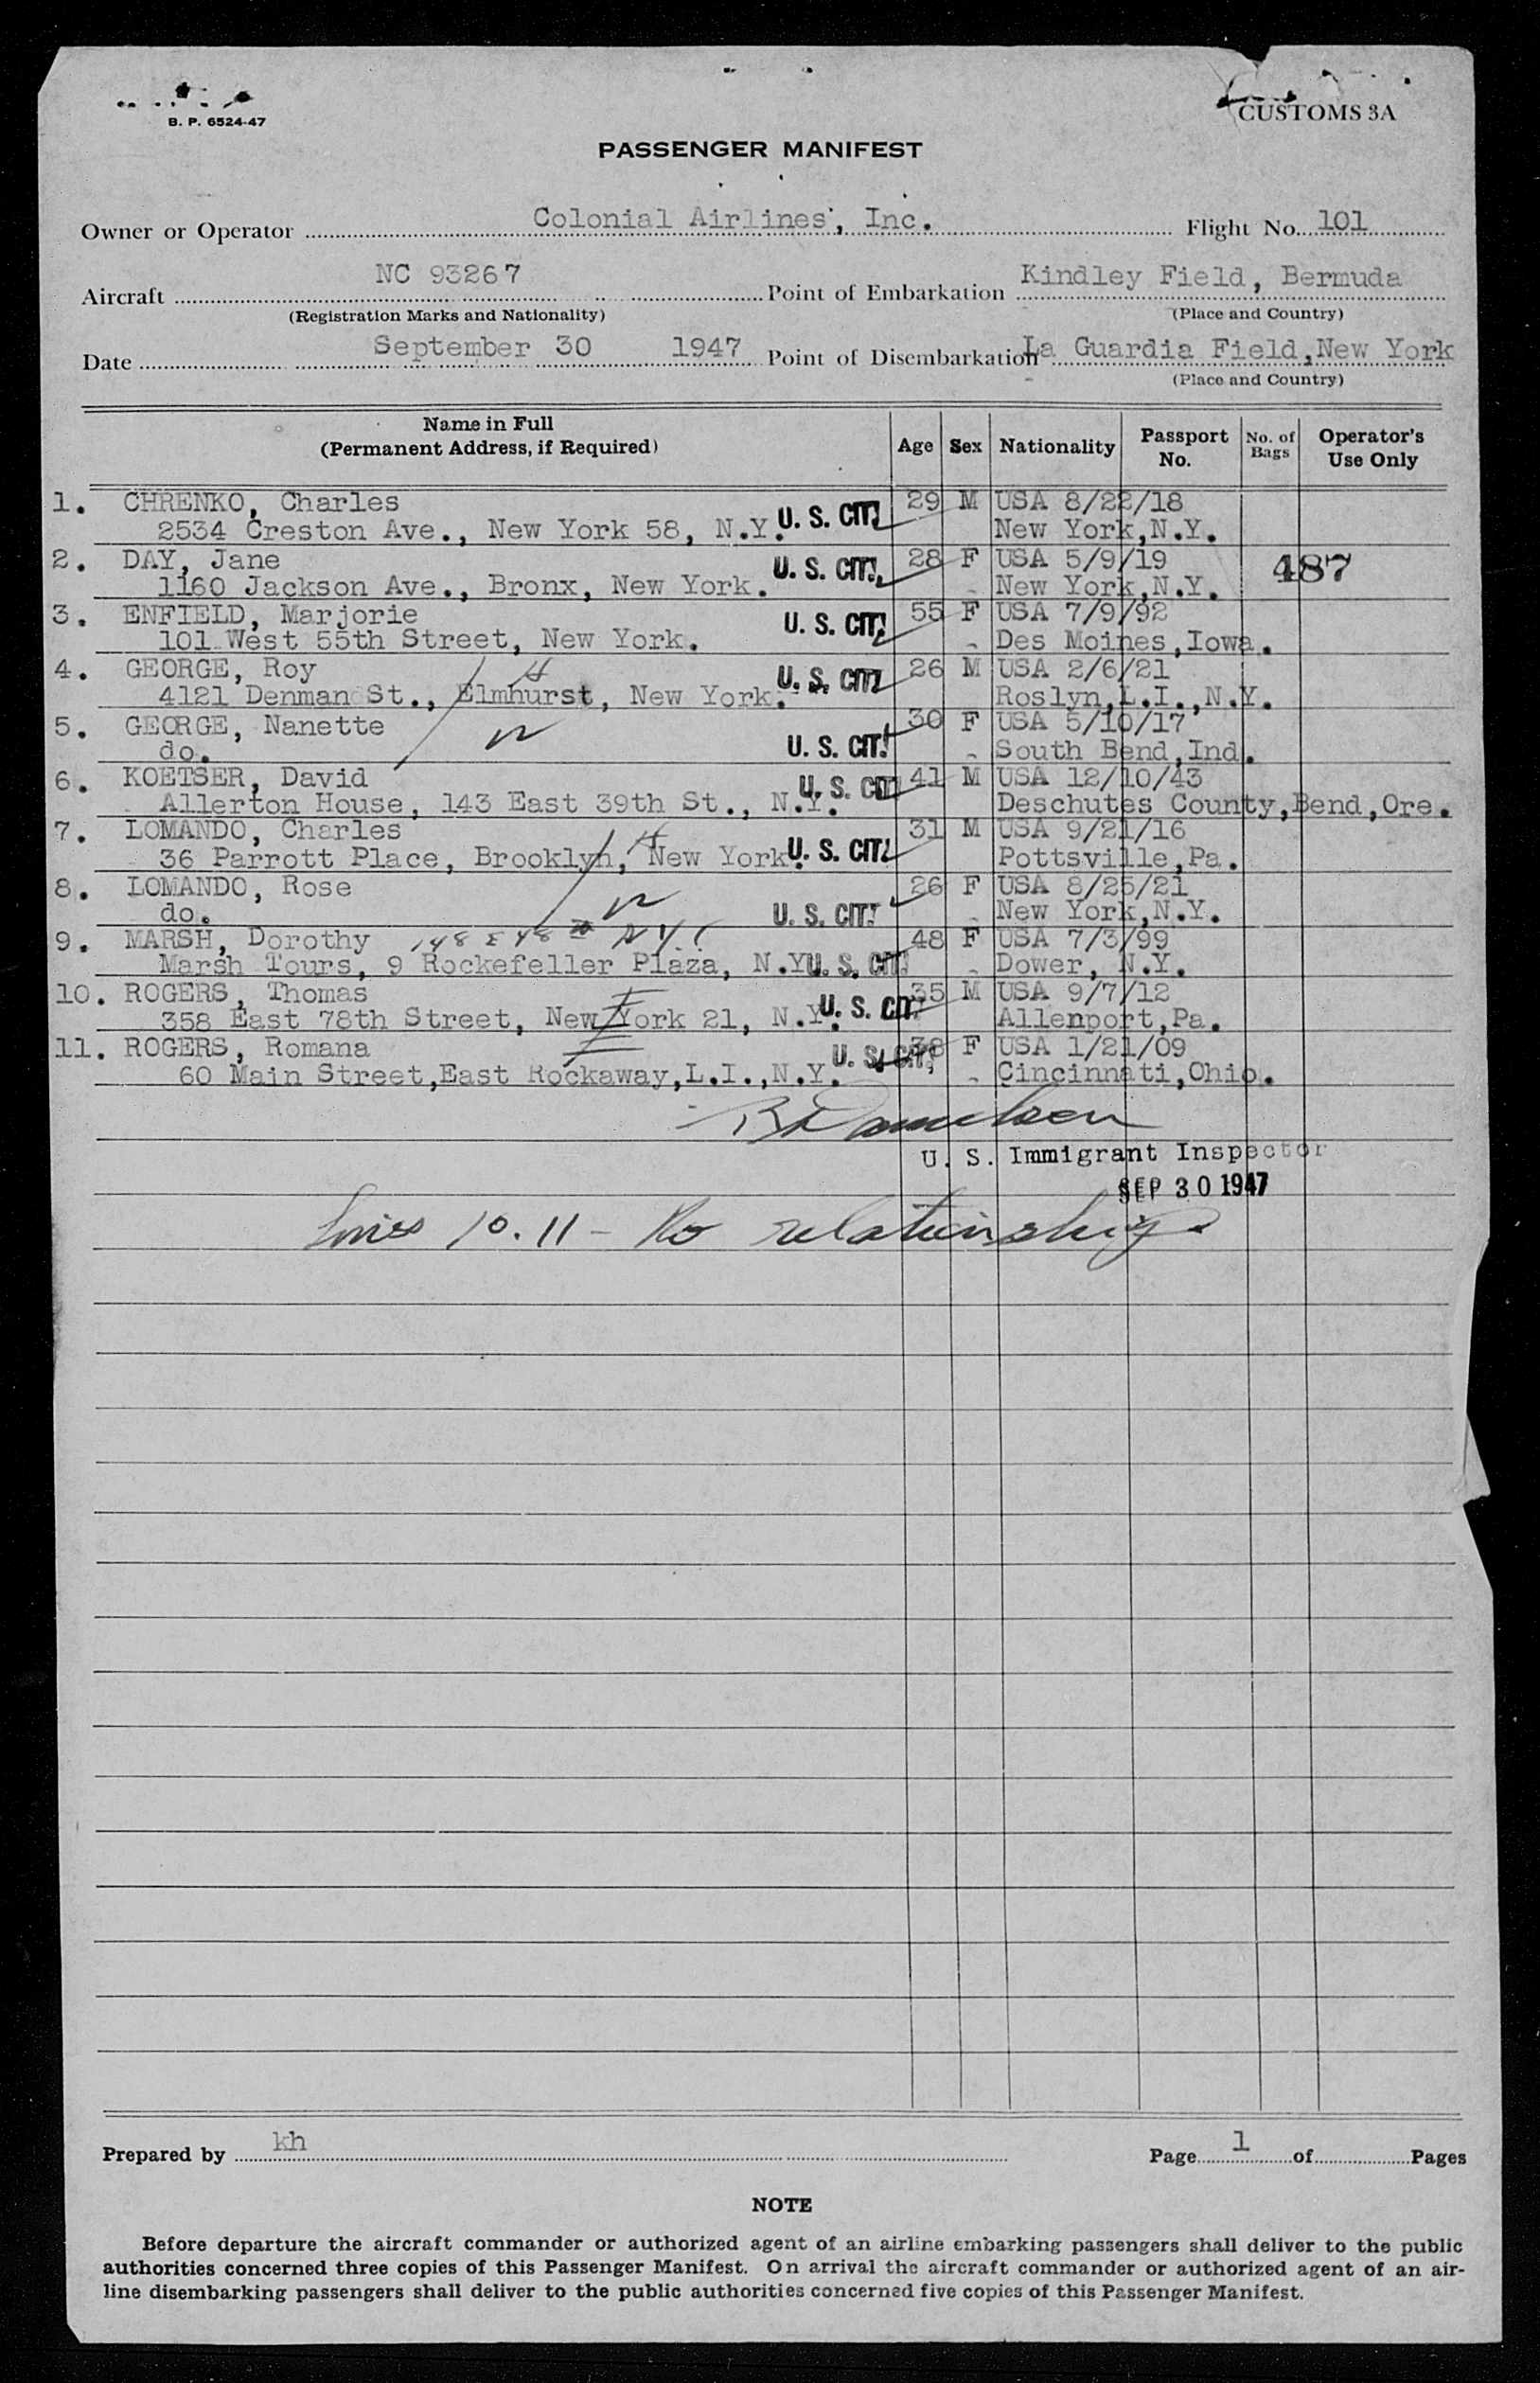 B. P. 6524-47
CUSTOMS 3A
PASSENGER MANIFEST
Owner or Operator Colonial Airlines, Inc. Flight No. 101
Aircraft NC 93267 Point of Embarkation Kindley Field, Bermuda
(Registration Marks and Nationality) (Place and Country)
Date September 30 1947 Point of Disembarkation La Guardia Field, New York
(Place and Country)
Name in Full (Permanent Address, if Required) Age Sex Nationality Passport No. No. of Bags Operator's Use Only
1. CHRENKO, Charles 29 M USA 8/22/18
2534 Creston Ave., New York 58, N.Y. U. S. CIT. New York,N.Y.
2. DAY, Jane U. S. CIT. 28 F USA 5/9/19 487
1160 Jackson Ave., Bronx, New York. New York,N.Y.
3. ENFIELD, Marjorie U. S. CIT. 55 F USA 7/9/92
101 West 55th Street, New York. Des Moines,Iowa.
4. GEORGE, Roy H U. S. CIT. 26 M USA 2/6/21
4121 Denman St., Elmhurst, New York. Roslyn,L.I.,N.Y.
5. GEORGE, Nanette W 30 F USA 5/10/17
do. U. S. CIT. South Bend,Ind.
6. KOETSER, David U. S. CIT 41 M USA 12/10/43
Allerton House, 143 East 39th St., N.Y. Deschutes County,Bend,Ore.
7. LOMANDO, Charles H 31 M USA 9/21/16
36 Parrott Place, Brooklyn, New York. U. S. CIT. Pottsville,Pa.
8. LOMANDO, Rose W 26 F USA 8/25/21
do. U. S. CIT. New York,N.Y.
9. MARSH, Dorothy 148 E 48 NYC 48 F USA 7/3/99
Marsh Tours, 9 Rockefeller Plaza, N.Y. U. S. CIT. Dower, N.Y.
10. ROGERS, Thomas 35 M USA 9/7/12
358 East 78th Street, New York 21, N.Y. U. S. CIT. Allenport,Pa.
11. ROGERS, Romana U. S. CIT. 38 F USA 1/21/09
60 Main Street,East Rockaway,L.I.,N.Y. Cincinnati,Ohio.
U. S. Immigrant Inspector
SEP 30 1947
Lines 10.11 - No relationship
Prepared by kh Page 1 of Pages
NOTE
Before departure the aircraft commander or authorized agent of an airline embarking passengers shall deliver to the public
authorities concerned three copies of this Passenger Manifest. On arrival the aircraft commander or authorized agent of an air-
line disembarking passengers shall deliver to the public authorities concerned five copies of this Passenger Manifest.